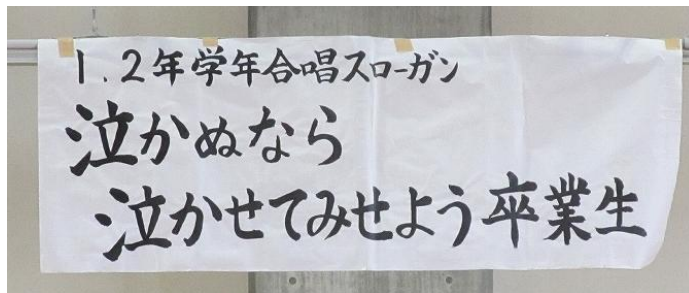 1.2年学年合唱スローガン
泣かぬなら
泣かせてみせよう卒業生